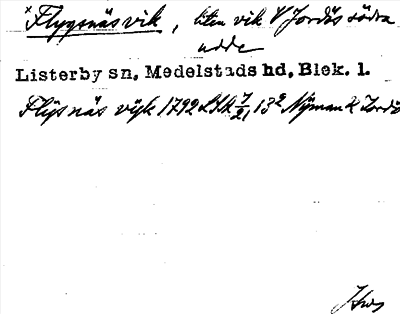 × Flygsnäsvik, liten vik V Jordös södra
udde
Listerby sn, Medelstads hd, Blek. l.
Flÿsnäs vÿk 1792 LSK 7/2, 13² Nÿman & Jordö